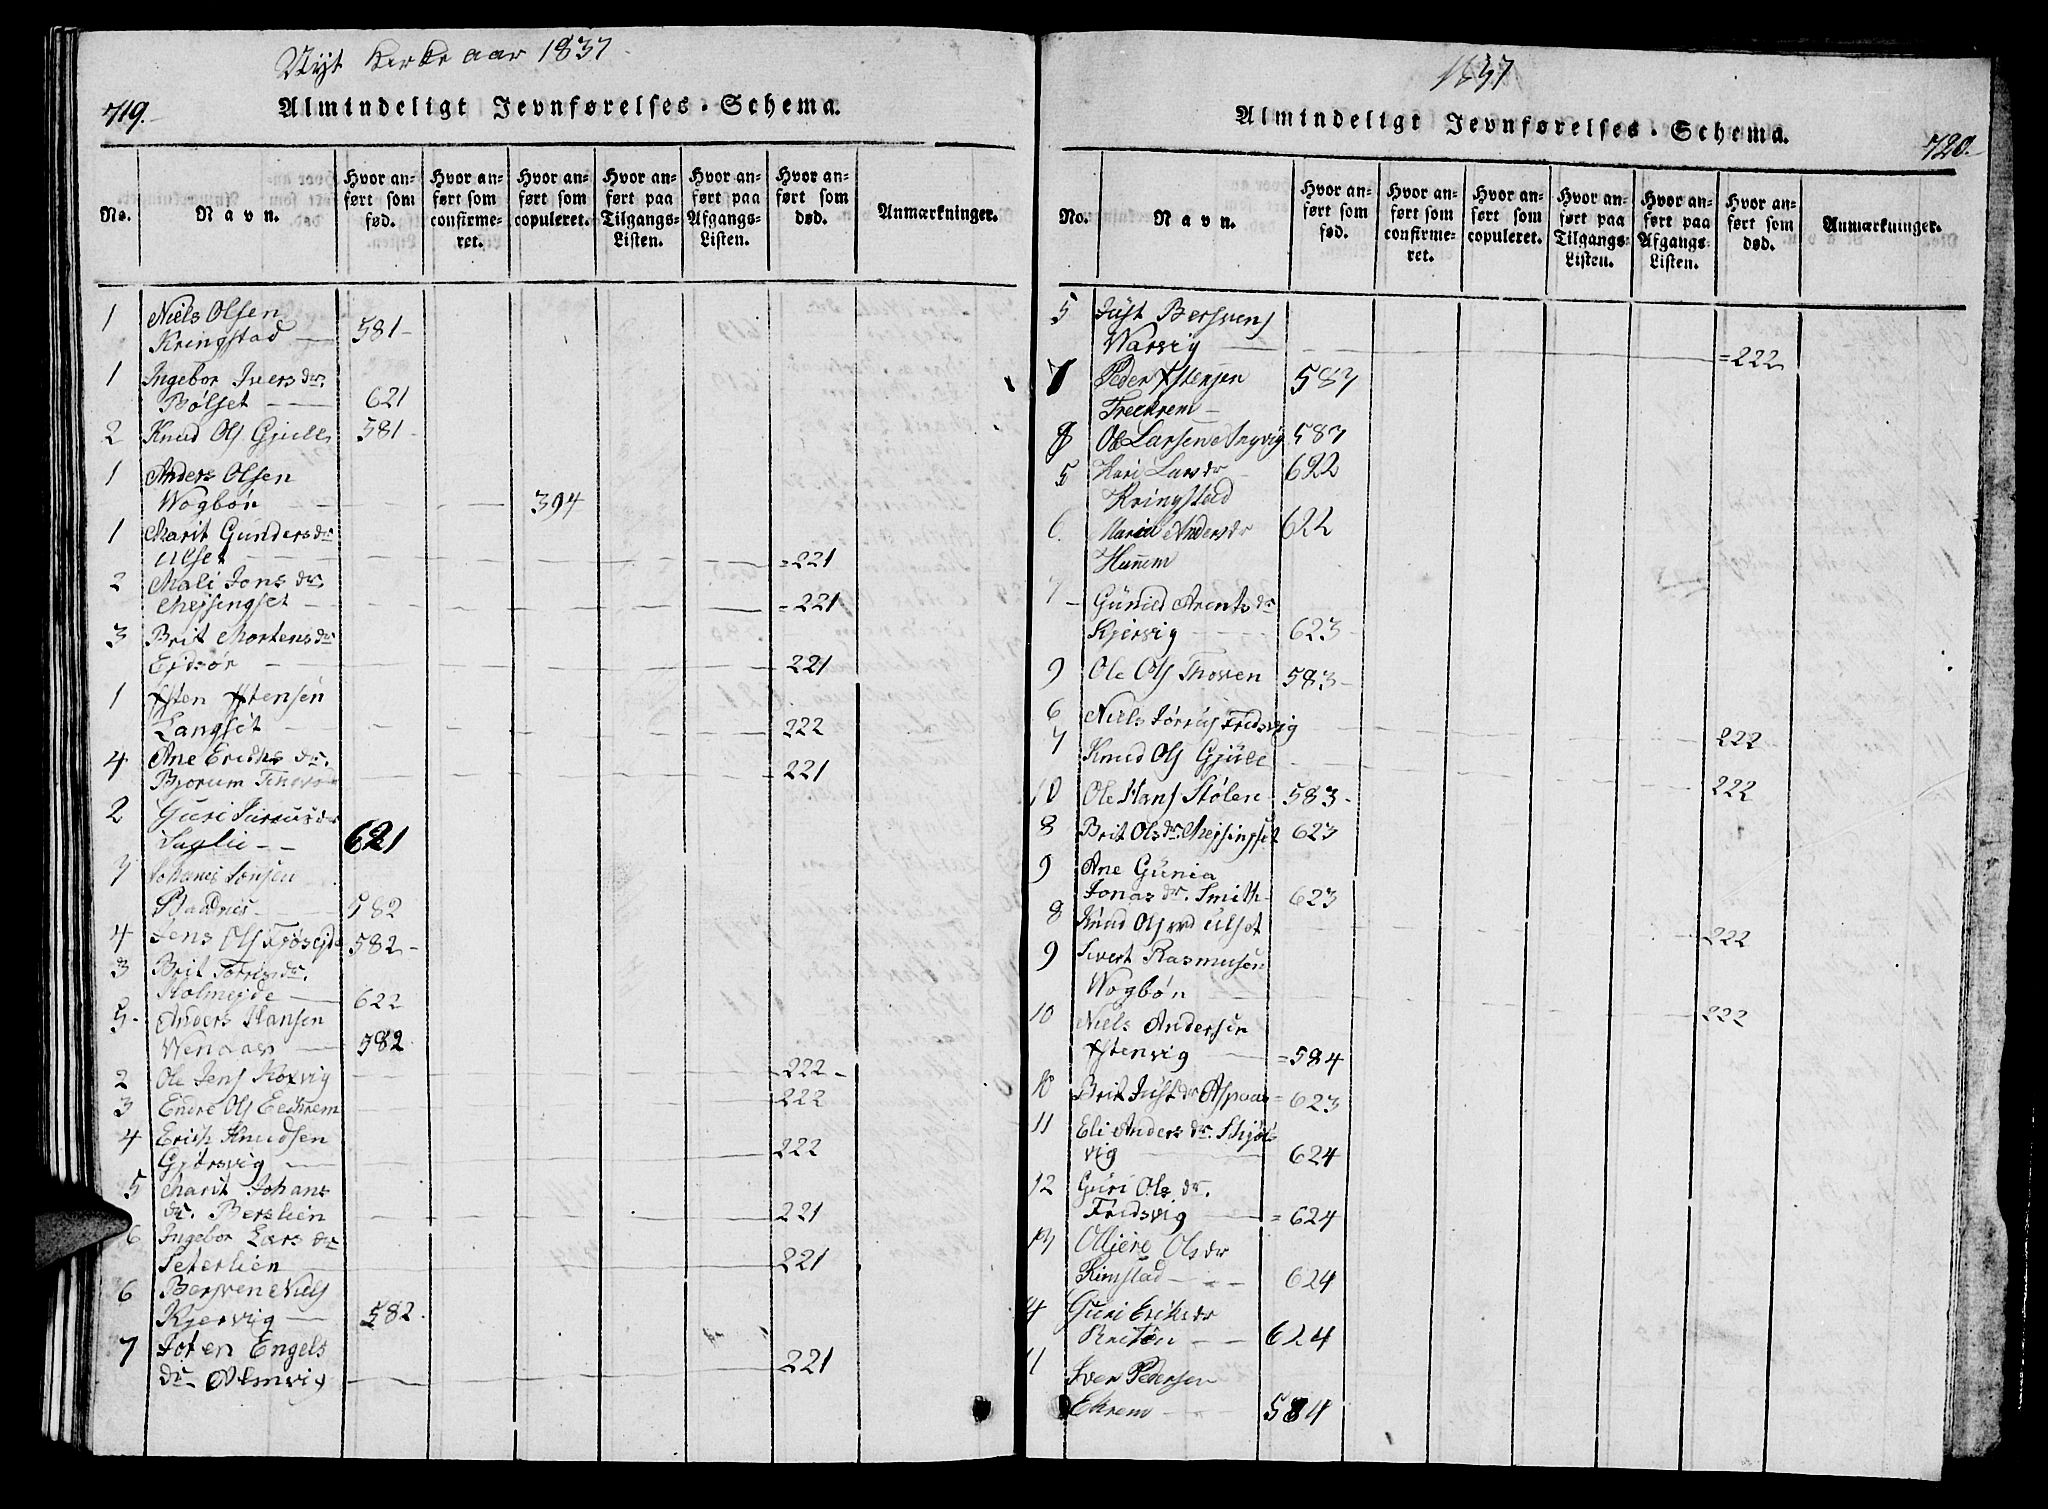 Nyt Kirke aar 1837
719.
Almindeligt Jevnførelses-Schema.
No.
Navn.
Hvor anført som fød.
Hvor anført som confirmeret.
Hvor anført som copuleret.
Hvor anført paa Tilgangs-Listen.
Hvor anført paa Afgangs-Listen.
Hvor anført som død.
Anmærkninger.
1 Niels Olsen
Kringstad 581
1 Ingebor Ivers dr.
Bølset 621
2 Knud Ols Gjull 581
1 Anders Olsen
Wogbøn 394
1 Marit Gunders dr
Ulset 221
2 Mali Jons dr.
Mejsingset 221
3 Brit Mortens dr
Ejdsør 221
1 Isten Istensen
Langset 222
4 Ane Erichs dr.
Bjorum 221
2 Guri dr
621
Johanes
582
4 Jens Ols 582
3 Brit dr.
Stolmejde 622
5 Anders Hansen
Wenaas 582
2 Ole Jens 222
3 Endre Ols Eeckrem 222
4 Erich Knudsen
Gjørsvig 222
5 Marit Johans
dr. Berslien 221
6 Ingebor Lars dr
Seterlien 221
6 Bersven Niels
Kjervig 582
7 Joren Engels
dr Almvig 221
1837
Almindeligt Jevnførelses-Schema.
720.
No.
Navn.
Hvor anført som fød.
Hvor anført som confirmeret.
Hvor anført som copuleret.
Hvor anført paa Tilgangs-Listen.
Hvor anført paa Afgangs-Listen.
Hvor anført som død.
Anmærkninger.
5 Just Bersvens
Warvig 222
7 Peder Istensen 583
Treekrem
8 Ole Larsen Angvig 583
5 Kari Lars dr 622
Kringstad
6 Maria Anders dr 622
Hunem
7 Gunild Arents dr
Kjersvig 623
9 Ole Ols Thoven 583
6 Niels Fredsvig 222
7 Knud Ols Gjull 222
10 Ole Hans Stølen 583
8 Brit Ols dr. Mejsingset 623
9 Ane Gunia
Jonas dr. Smith 623
8 Knud Ols Ulset 222
9 Sivert Rasmusen
Wogbøn 222
10 Niels Andersen
Istenvig 584
10 Brit Just dr Aspaas 623
11 Eli Anders dr.
vig 624
12 Guri Ols dr.
Fredsvig 624
13 Oljene Ols dr
Rimstad 624
14 Guri Eriks dr
624
11 Iver Pedersen
Ekrem 584